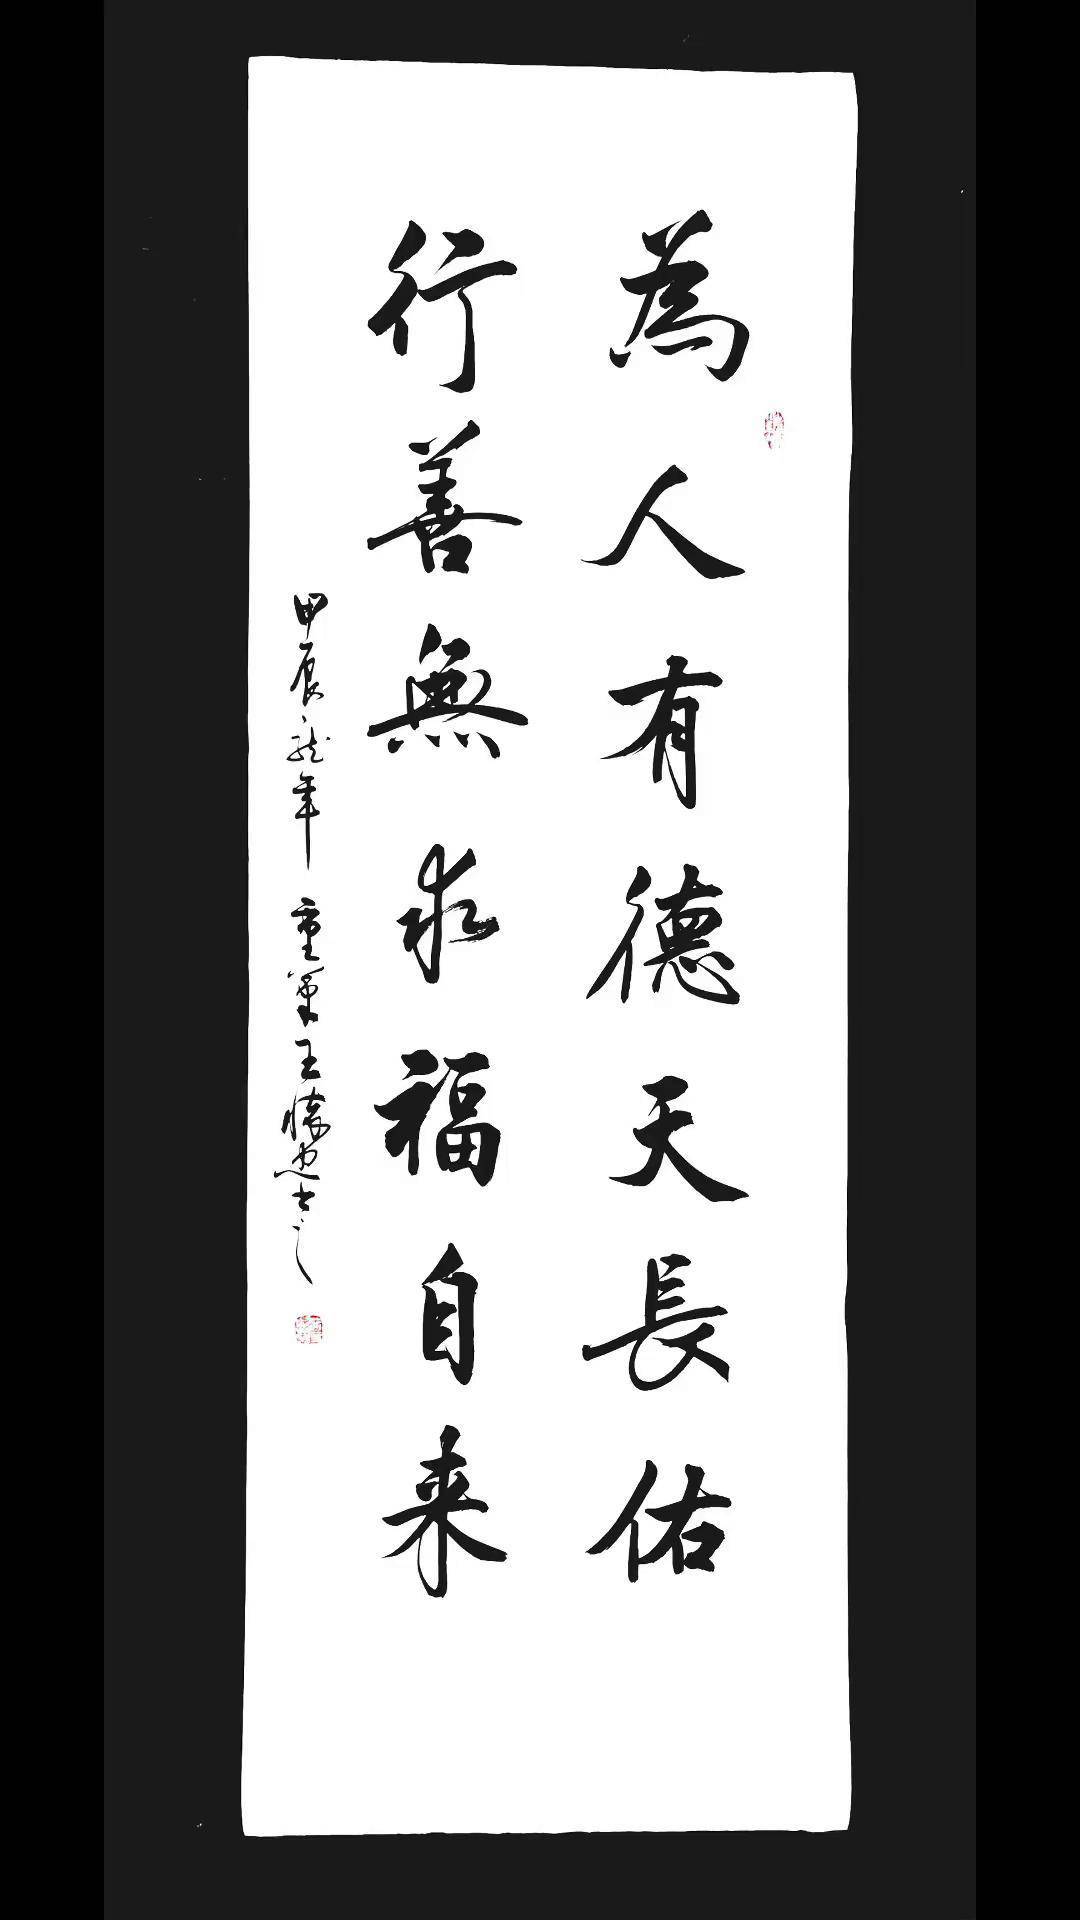 為人有德天長佑
行善無求福自来
甲辰龙年 重笔王懷忠书之